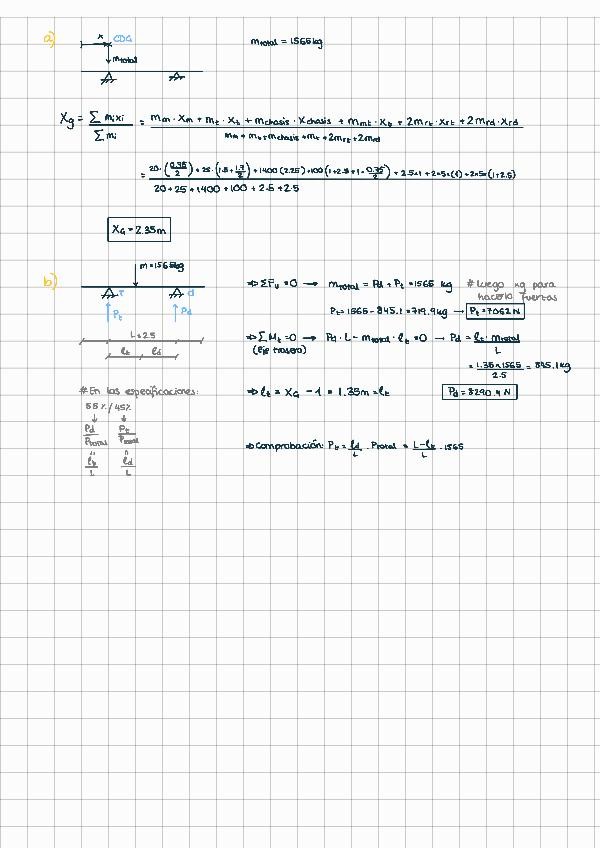 a)
x CDG
m total
m total = 1565 kg
Xg = Σ mi xi / Σ mi = mm · Xm + mt · Xt + mchasis · Xchasis + mmt · Xt + 2mrt · Xrt + 2mrd · Xrd / mm + mt + mchasis + mt + 2mrt + 2mrd
20 + 25 + 1400 + 100 + 2·5 + 2·5
XG = 2.35 m
b)
m = 1565 kg
T d
Pt Pd
L = 2.5
lt ld
⇒ ΣFv = 0 → m total = Pd + Pt = 1565 kg
# Luego kg para hacerlo fuerzas
Pt = 1565 - 845.1 = 719.9 kg → Pt = 7062 N
⇒ ΣMt = 0 → Pd · L - m total · lt = 0 → Pd = lt · m total / L
(Eje trasero)
= 1.35 × 1565 / 2.5 = 845.1 kg
⇒ lt = XG - 1 = 1.35 m = lt
Pd = 8290.4 N
# En las especificaciones:
55 % / 45 %
Pd / Ptotal Pt / Ptotal
lt / L ld / L
⇒ Comprobación: Pt = ld / L · Ptotal = L - lt / L · 1565